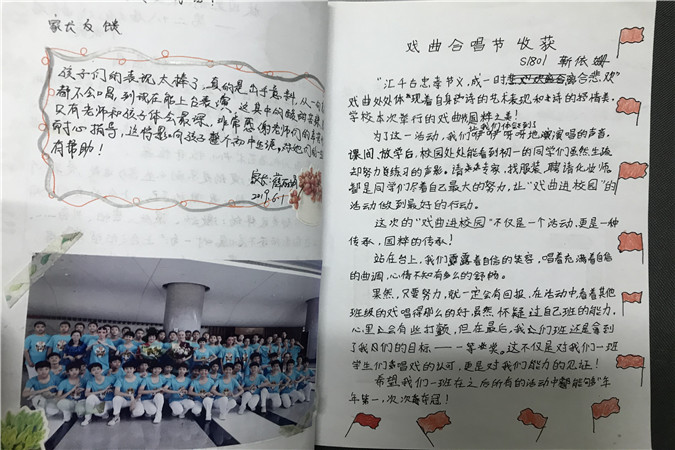 家长反馈
孩子们的表现太棒了,真的是出乎意料,从一句
都不会唱,到现在能上台表演,这其中的酸甜苦辣
只有老师和孩子体会最深,非常感谢老师们的辛苦
耐心指导,这将是对孩子整个初中生涯
有帮助!
家长:
2019.6.1
戏曲合唱节收获
S1801 靳依娜
“汇千古忠孝节义,成一时离合悲欢”
戏曲处处体现着自身史诗的艺术表现和史诗的轻情美。
学校本次举行的戏曲
为了这一活动,我们
课间、放学后,校园处处能看到初一的同学们虽然生疏
却努力练习的声影。请专家,找服装,聘请化妆师,
都是同学们尽着自己最大的努力,让“戏曲进校园”的
活动做到最好的行动。
这次的“戏曲进校园”不仅是一个活动,更是一种
传承,国粹的传承!
站在台上,我们露着自信的笑容,唱着充满着自信
的曲调,心情不知有多么的舒畅。
果然,只要努力,就一定会有回报,在活动中看着其他
班级的戏唱得那么的好,虽然,怀疑过自己班的能力,
心里也会有些打颤,但在最后,我们班还是拿到
了我们的目标——一等奖。这不仅是对我们一班
学生们唱戏的认可,更是对我们能力的见证!
希望,我们一班在之后所有的活动中都能够“年
年第一,次次夺冠!